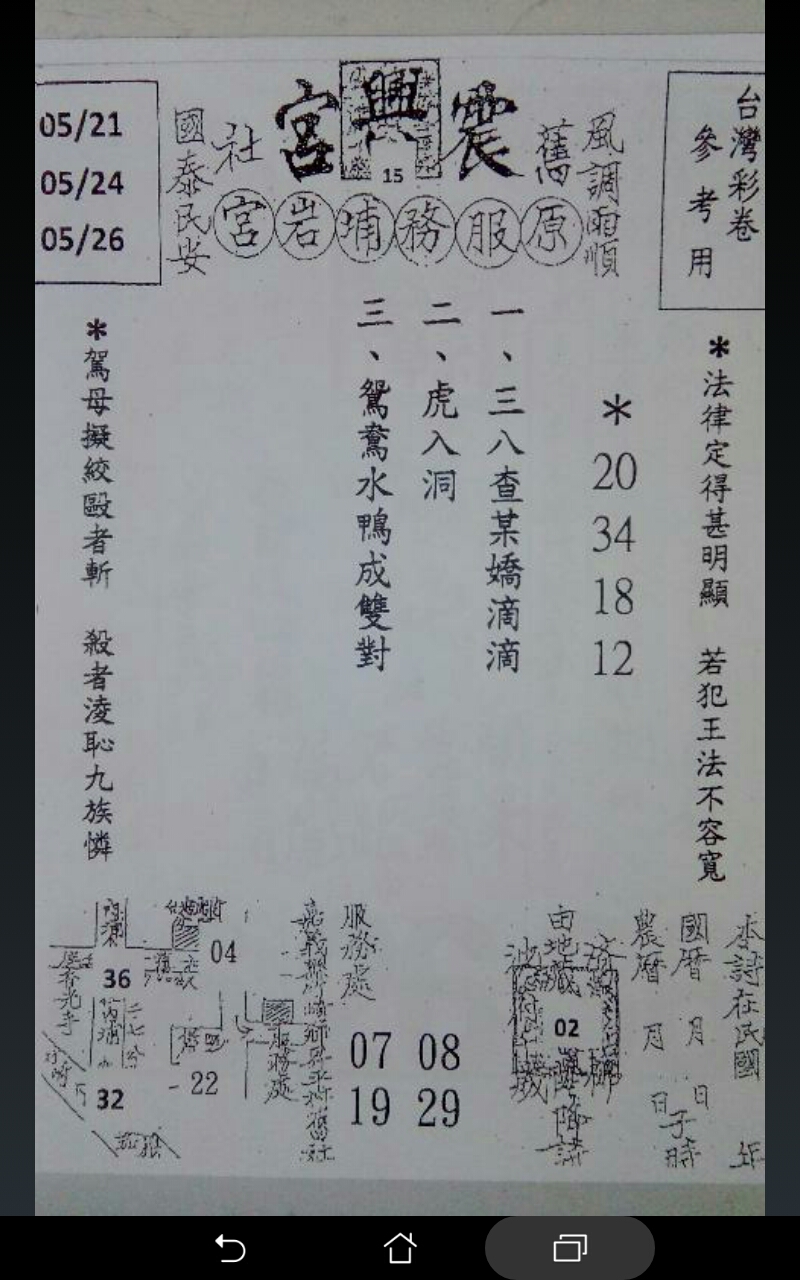 台灣彩卷
參考用
風調雨順
震興宮
15
舊
社
原服務埔岩宮
國泰民安
05/21
05/24
05/26
＊法律定得甚明顯　若犯王法不容寬
＊
20
34
18
12
一、三八查某嬌滴滴
二、虎入洞
三、鴛鴦水鴨成雙對
＊駕母擬絞毆者斬　殺者淩恥九族憐
本詩在民國　年
國曆　月　日
農曆　月　日子時
02
服務處
07 08
19 29
服務處
04
36
22
32